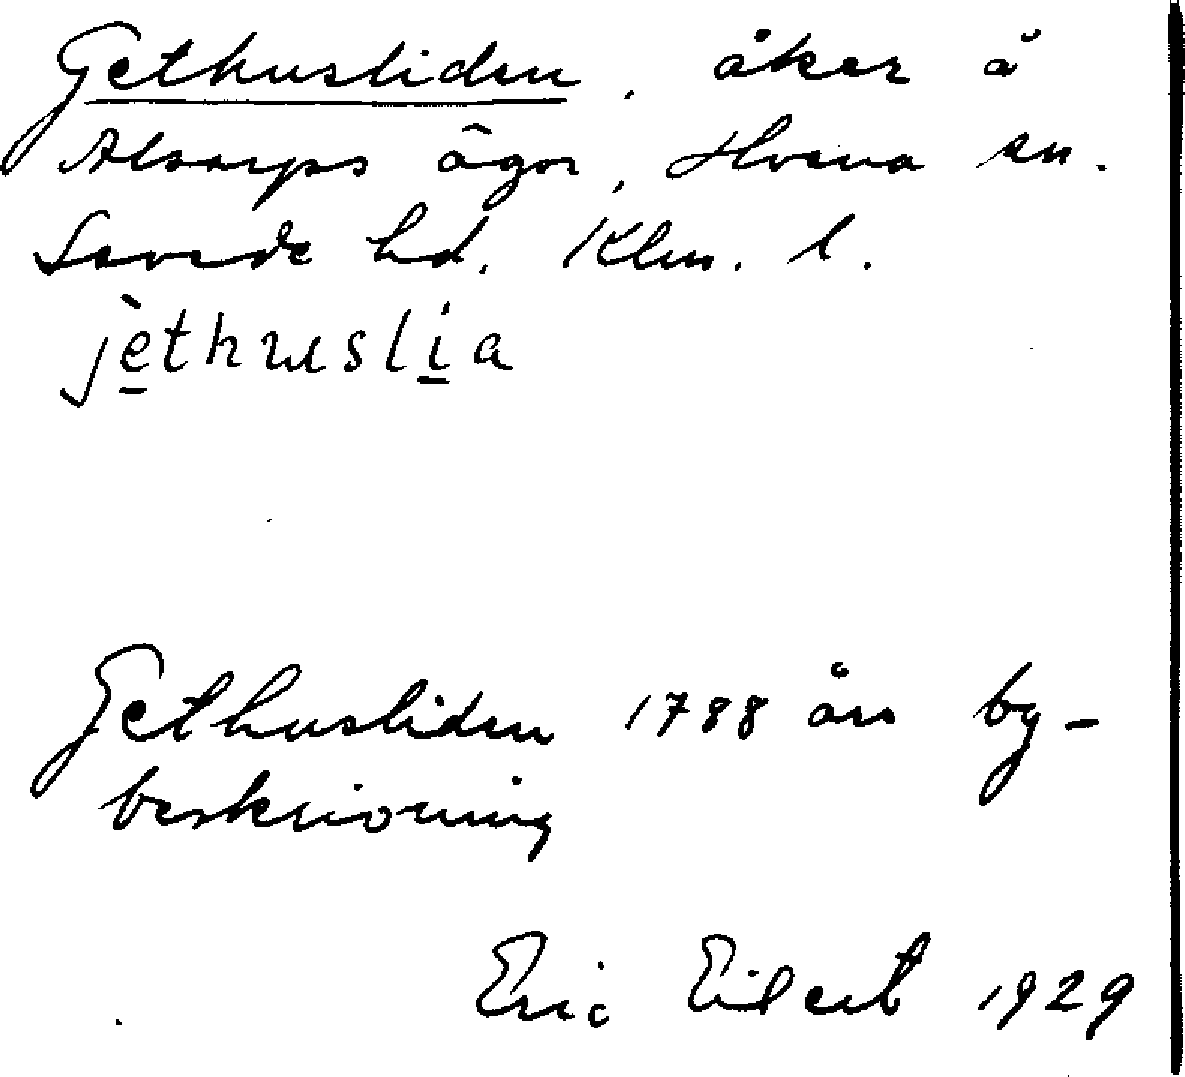 Gethusliden, åker å
Alsarps ägor, Hvena sn.
Sevede hd. Klm. l.
jèthuslia
Gethusliden 1788 års by-
beskrivning
Eric Eilert 1929